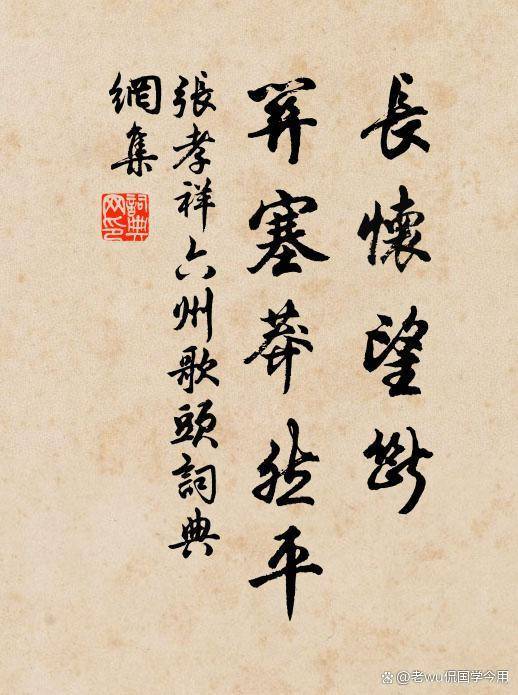 長懷望斷
關塞莽然平
張孝祥六州歌頭詞典
網集
詞典
网印
@老wu侃国学今用